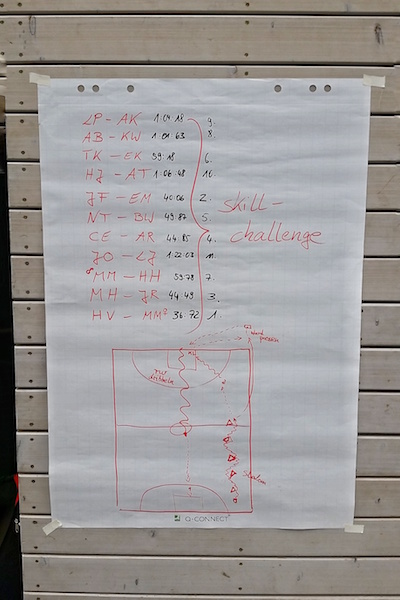 LP - AK 1:04:18 9.
AB - KW 1:01:63 8.
TK - EK 59:18 6.
HJ - AT 1:06:48 10.
JF - EM 40:06 2.
NT - BW 49:87 5.
CE - AR 44:85 4.
JO - LJ 1:22:03 11.
MM - HH 59:78 7.
MH - JR 44:49 3.
HV - MM² 36:72 1.
skill-
challenge
Q-CONNECT